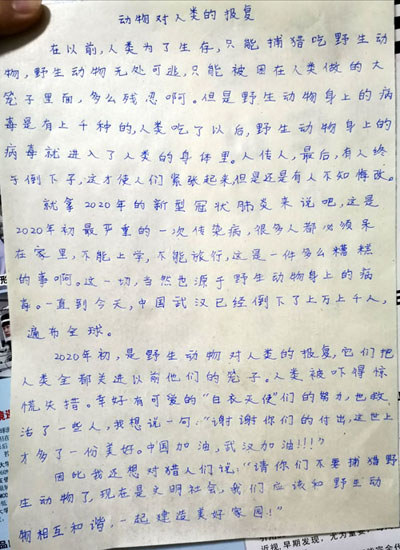 动物对人类的报复
在以前,人类为了生存,只能捕猎吃野生动
物,野生动物无处可逃,只能被困在人类做的大
笼子里面,多么残忍啊。但是野生动物身上的病
毒是有上千种的,人类吃了以后,野生动物身上的
病毒就进入了人类的身体里。人传人,最后,有人终
于倒下了,这才使人们紧张起来,但是还是有人不知悔改。
就拿2020年的新型冠状肺炎来说吧,这是
2020年初最严重的一次传染病,很多人都必须呆
在家里,不能上学,不能旅行,这是一件多么糟糕
的事啊。这一切,当然也源于野生动物身上的病
毒。一直到今天,中国武汉已经倒下了上万上千人,
遍布全球。
2020年初,是野生动物对人类的报复,它们把
人类全都关进以前他们的笼子。人类被吓得惊
慌失措。幸好有可爱的“白衣天使”们的努力,也救
活了一些人,我想说一句:“谢谢你们的付出,这世上
才多了一份美好。中国加油,武汉加油!!!”
因此我还想对猎人们说:“请你们不要捕猎野
生动物了,现在是文明社会,我们应该和野生动
物相互和谐,一起建造美好家园!”